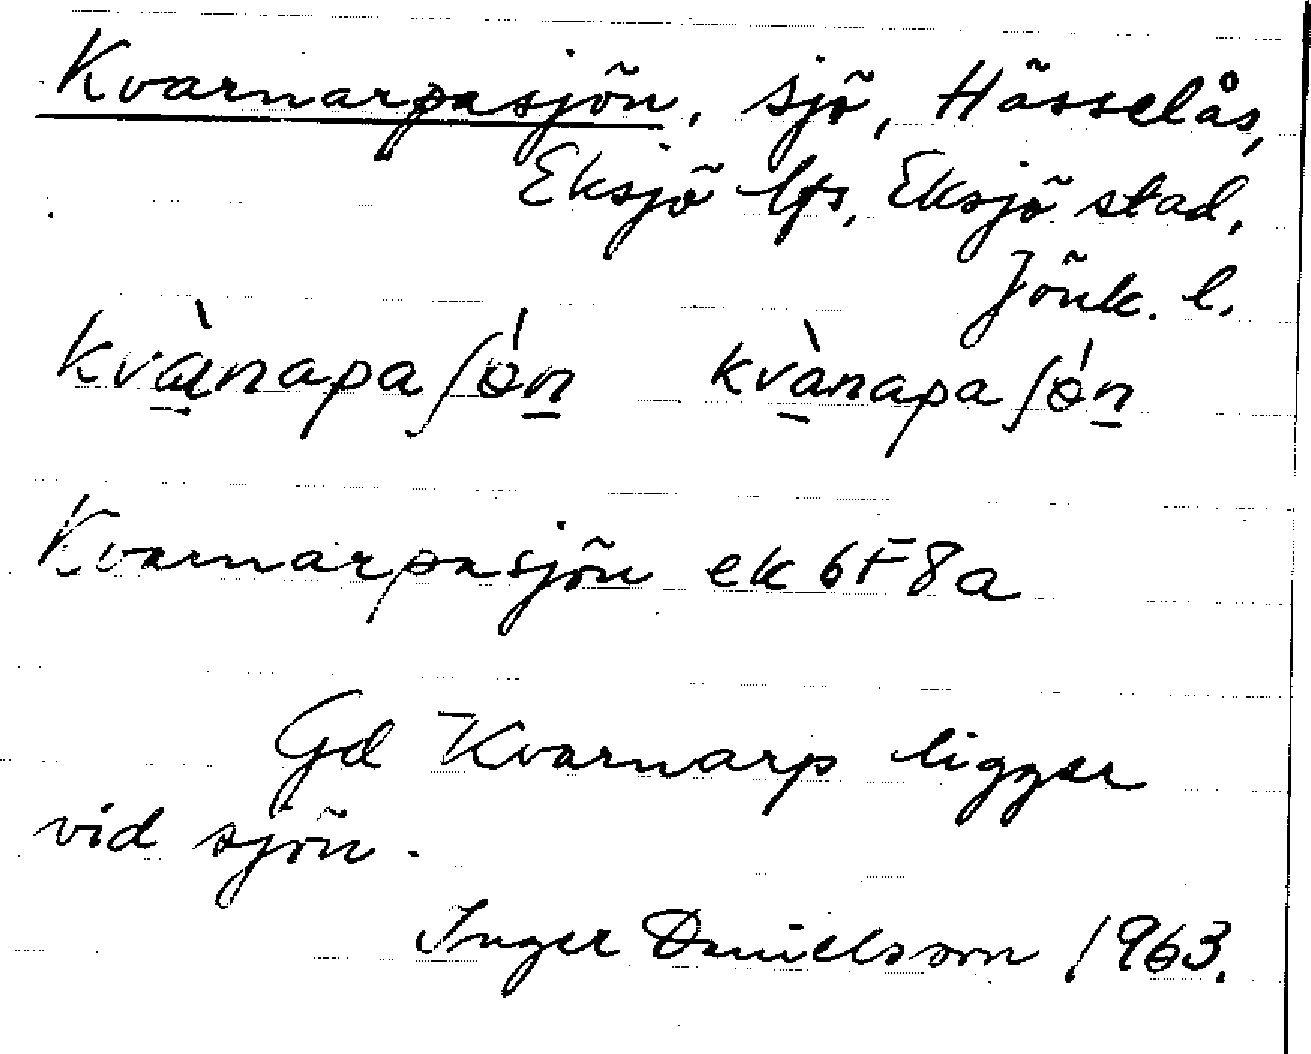 Kvarnarpasjön, sjö, Hässelås,
Eksjö lfs, Eksjö stad,
Jönk. l.
kvànapaʃǿn kvànapaʃǿn
Kvarnarpasjön ek 6F8a
Gd Kvarnarp ligger
vid sjön.
Inger Danielsson 1963.